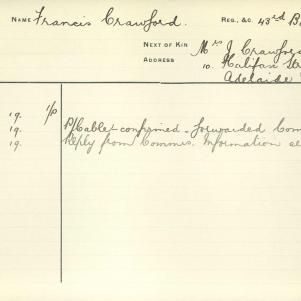 NAME Francis Crawford. REG., &C. 43rd B
NEXT OF KIN Mrs J Crawford
ADDRESS 10. Halifax Str
Adelaide
19. 1/P
19. P/Cable confirmed - forwarded Com
19. Reply from Commis. Information al